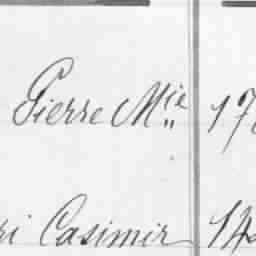 Pierre Mie 17
ri Casimir 14